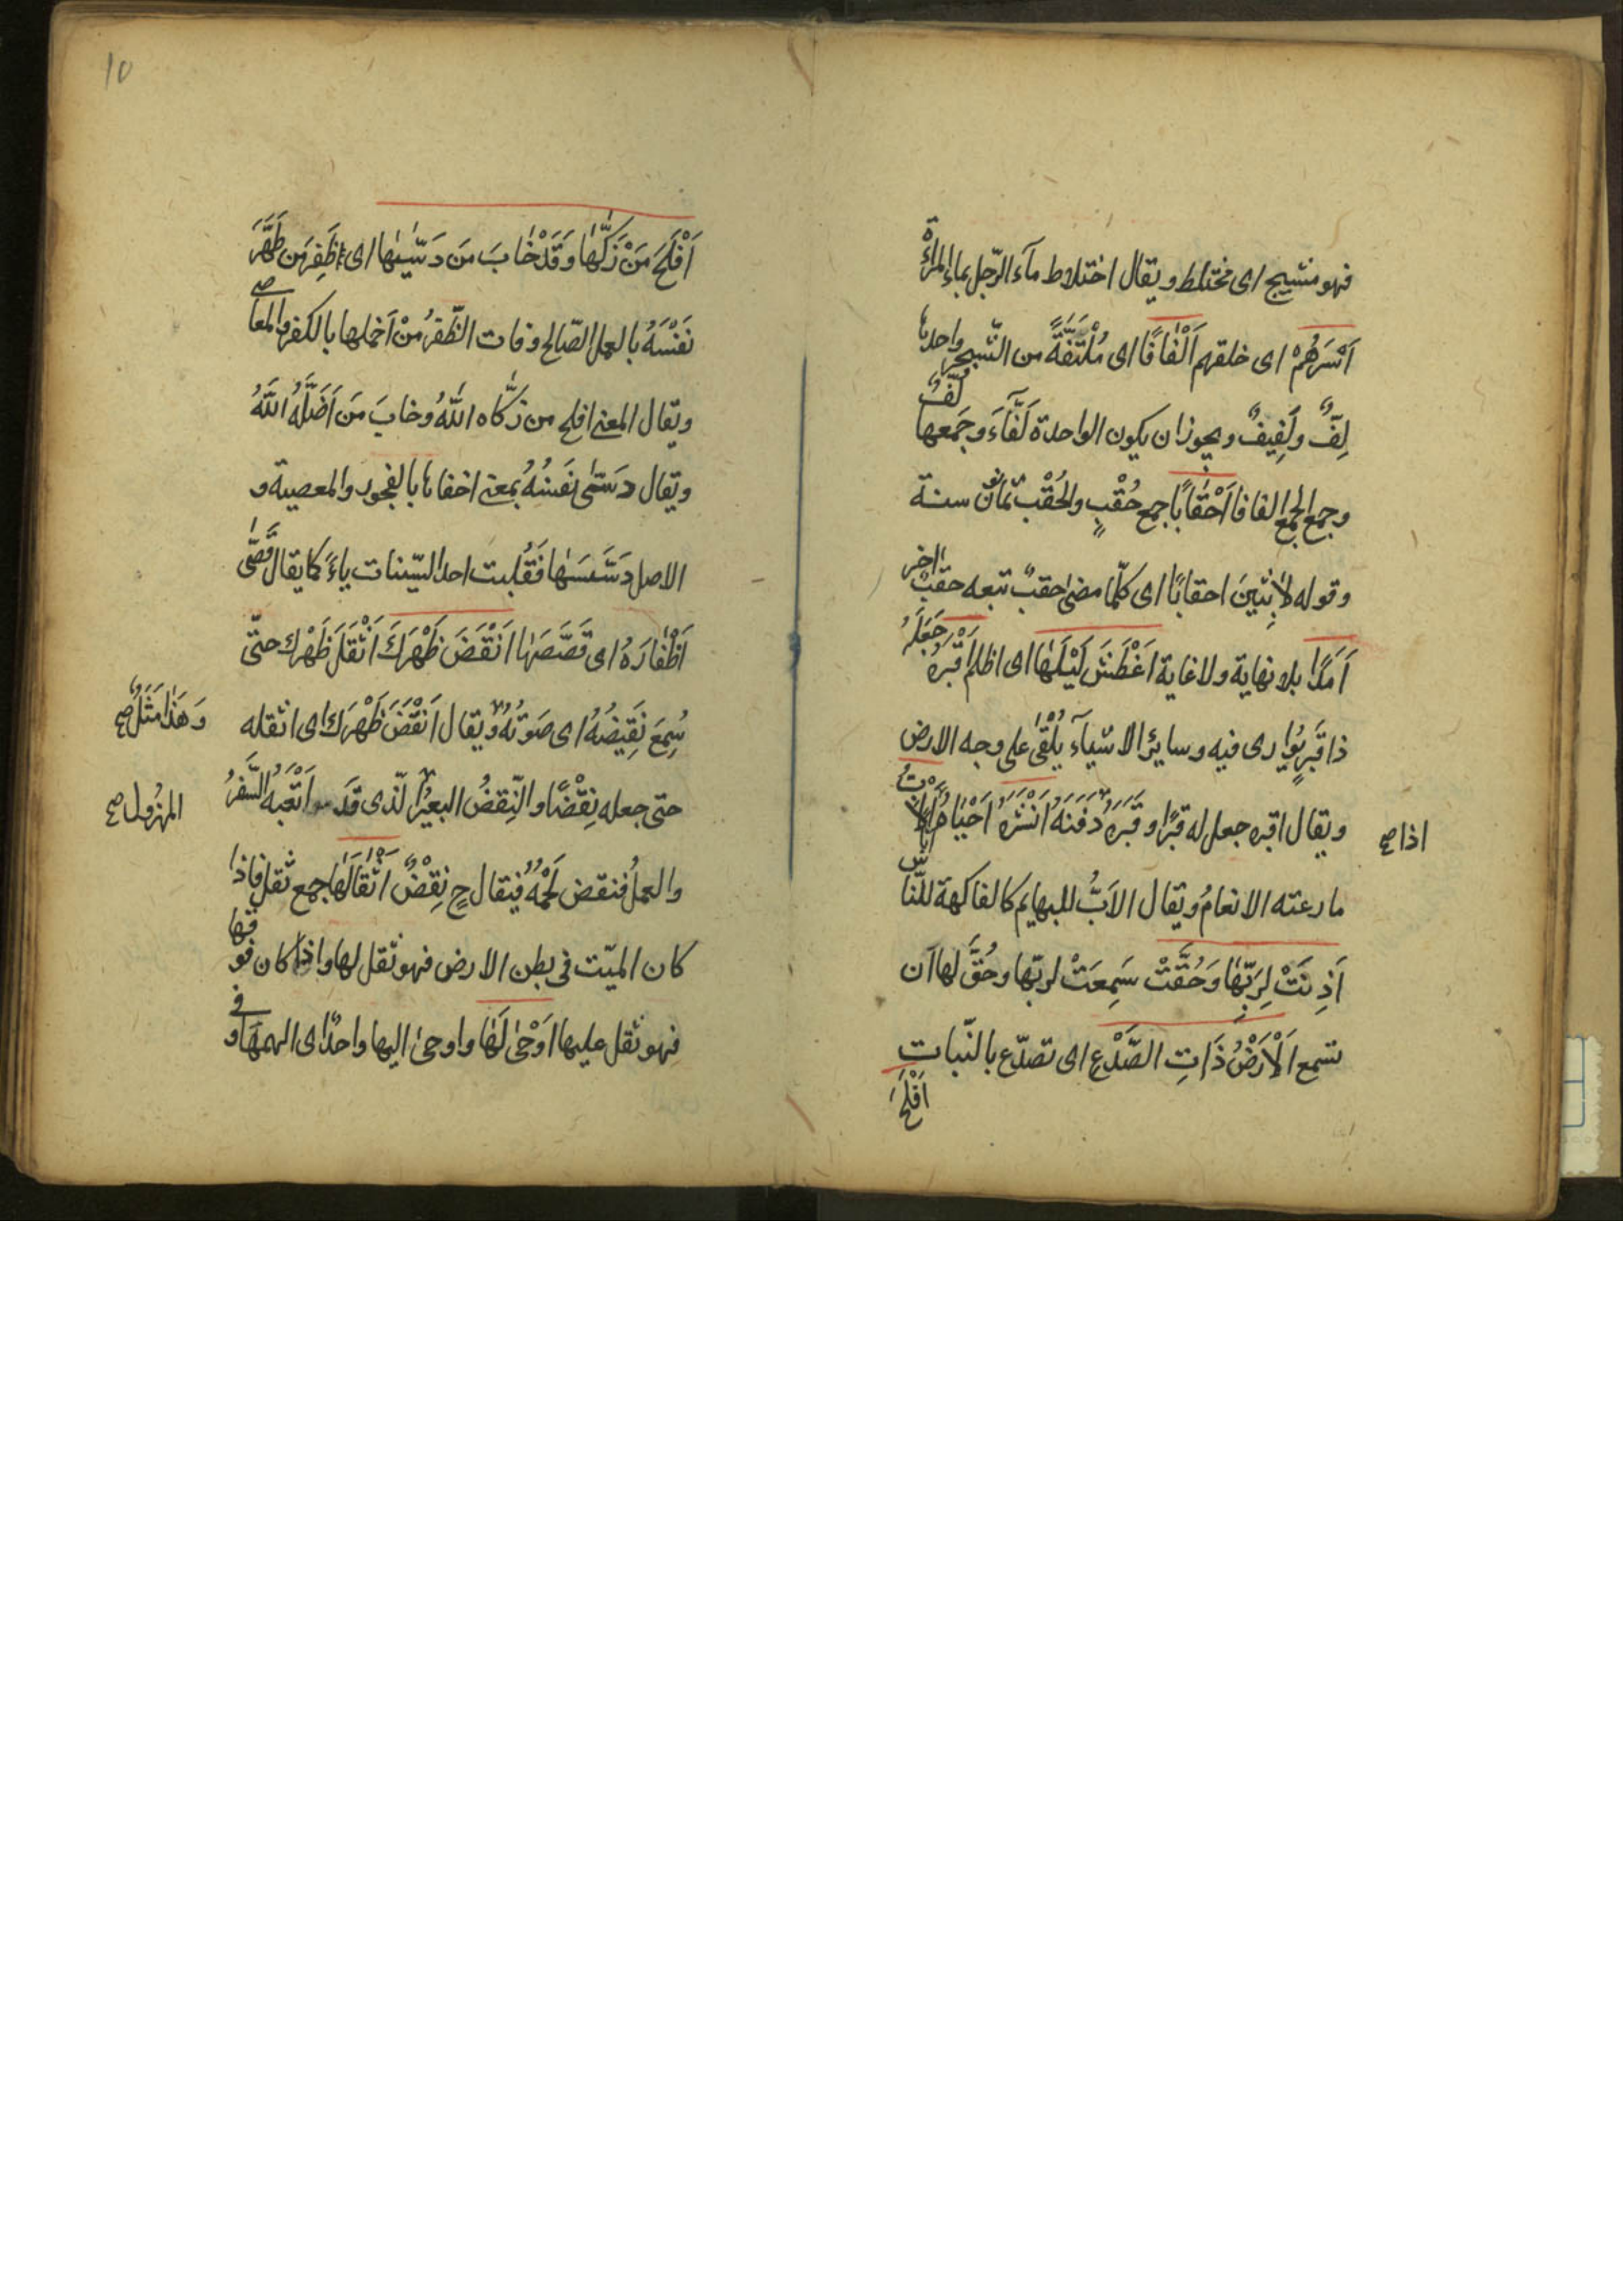 فهو منشيج اى مختلط ويقال اختلاط مآء الرّجل بماء المراة
اَسْرَهُمْ اى خلقهم اَلْفَافًا اى مُلْتَفَّةً من الشّجر واحدها
لِفٌّ ولَفِيفٌ ويجوز ان يكون الواحدة لَفَّاءَ وجَمعها لُفٌّ
وجمع الجمع الفافا اَحْقَابًا جمع حُقْبٍ والحُقْبُ ثمانون سنة
وقوله لَابِثِينَ احقابًا اى كلّما مضى حقبٌ تبعه حقبٌ اخر
اَمَدًا بلا نهاية ولا غاية اَغْطَشَ لَيْلَهَا اى اظلم اَقْبَرَهُ جَعَلَهُ
ذا قَبرٍ يُوارى فيه وسايرُ الاشيآء يُلْقىٰ على وجه الارض
ويقال اقبره جعل له قبرًا وقَبَرَهُ دَفَنَهُ اَنْشَرَهُ اَحْيَاهُ اَلْاَبُّ
اذا صح
ما رعته الانعامُ ويقال الاَبُّ للبهايم كالفاكهة للنّاس
اَذِنَتْ لِرَبِّهَا وَحُقَّتْ سَمِعَتْ لربّها وحُقَّ لها ان
تسمع اَلْاَرْضُ ذَاتِ الصَّدْعِ اى تصدّع بالنّبات
اَفْلَحَ
10
اَفْلَحَ مَنْ زَكّٰهَا وَقَدْ خَابَ مَن دَسّٰيهَا اى ظَفِرَ مَن طَهَّرَ
نَفْسَهُ بالعمل الصّالح وفات الظّفرُ مَنْ اَخملها بالكفر والمعاصى
ويقال المعنى افلح من زكّاه اللهُ وخابَ مَن اَضَلَّهُ اللهُ
ويقال دَسّٰى نَفسَهُ بمعنى اخفاها بالفجور والمعصية و
الاصل دَسَّسَهَا فَقُلِبت احد السّينات ياءً كما يقال قَصّٰى
اَظْفَارَهُ اى قَصَّصَهَا اَنْقَضَ ظَهْرَكَ اَثْقَلَ ظَهْرك حتّى
سُمِعَ نَقِيضُهُ اى صَوتُهُ ويقال اَنْقَضَ ظَهْرَك اى اثقله
وَهَذَا مَثَلٌ صح
حتى جعله نِقْضًا والنِّقضُ البعيرُ الّذى قَد اَتْعَبَهُ السَّفرُ
المهزول صح
والعملُ فنقض لَحْمُهُ فيقال ح نِقْضٌ اَثْقَالَهَا جمع ثقل فاذا
كان الميّت فى بطن الارض فهو ثقل لها واذا كان فوقها
فهو ثقل عليها اَوْحٰى لَهَا واوحى اليها واحدٌ اى الهمَهَا وفى